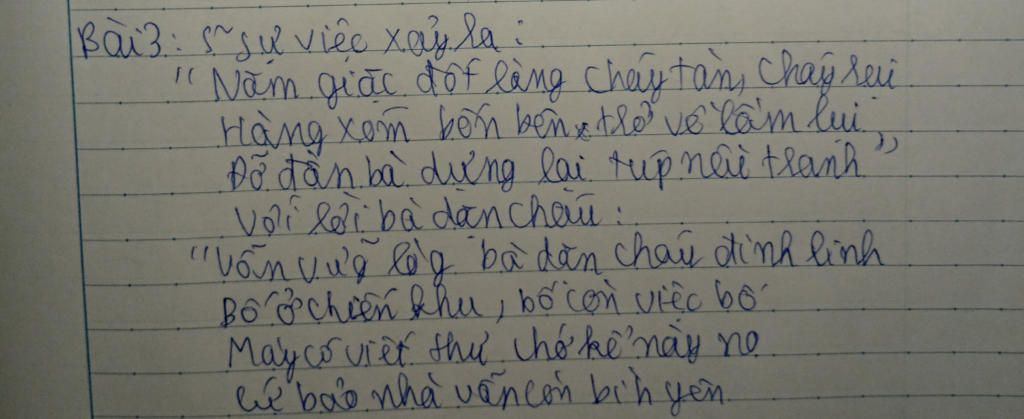 Bài 3: sự việc xảy ra:
"Năm giặc đốt làng cháy tàn, cháy rụi
Hàng xóm bốn bên trở về lầm lụi
Đỡ đần bà dựng lại túp nếu tranh"
Với lời bà dặn cháu:
"Vẫn vững lòg bà dặn cháu đinh linh
Bố ở chiến khu, bố còn việc bố
Mày có viết thư chớ kể này nọ
Cứ bảo nhà vẫn còn bình yên